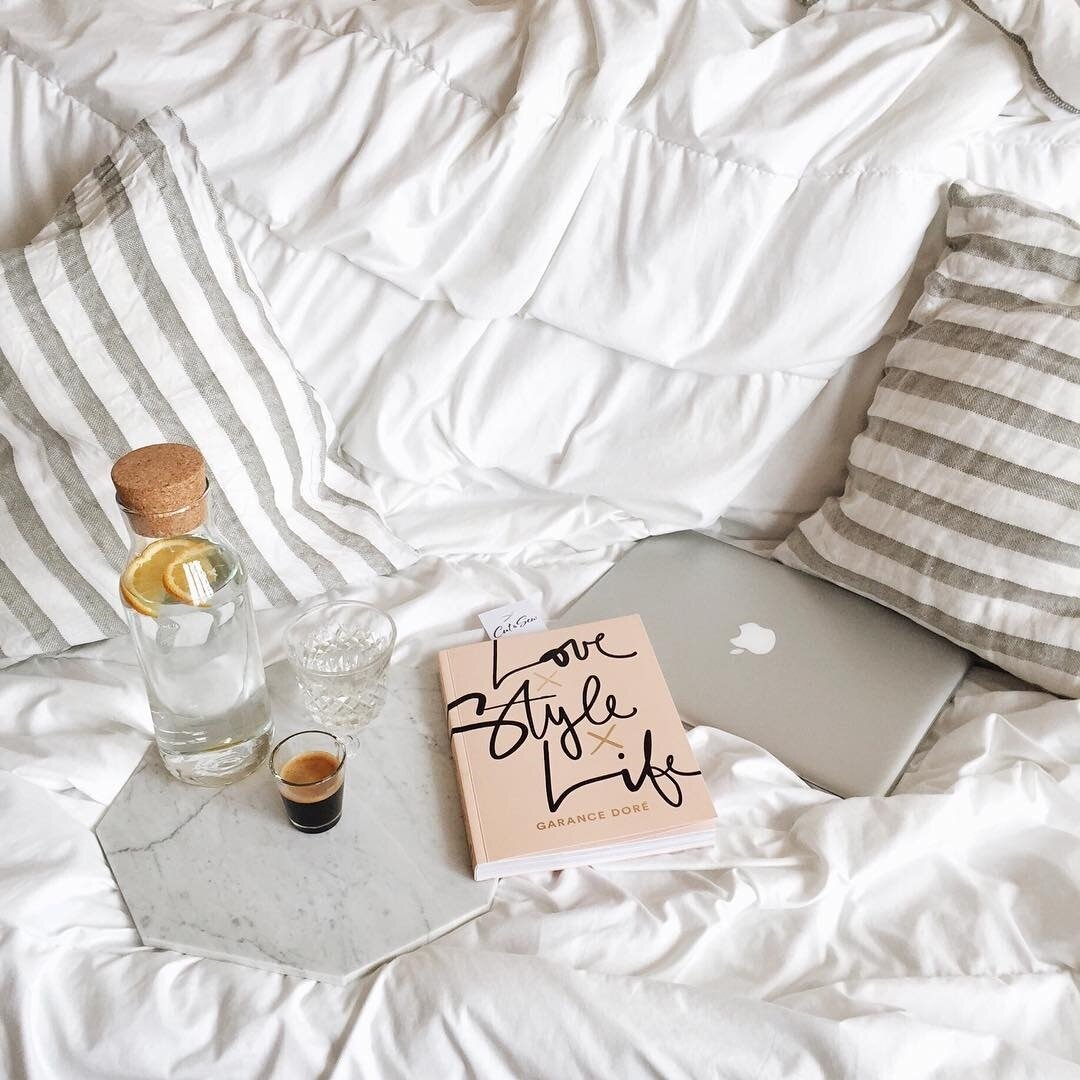 Cut & Sew
Love
×
Style
×
Life
GARANCE DORÉ